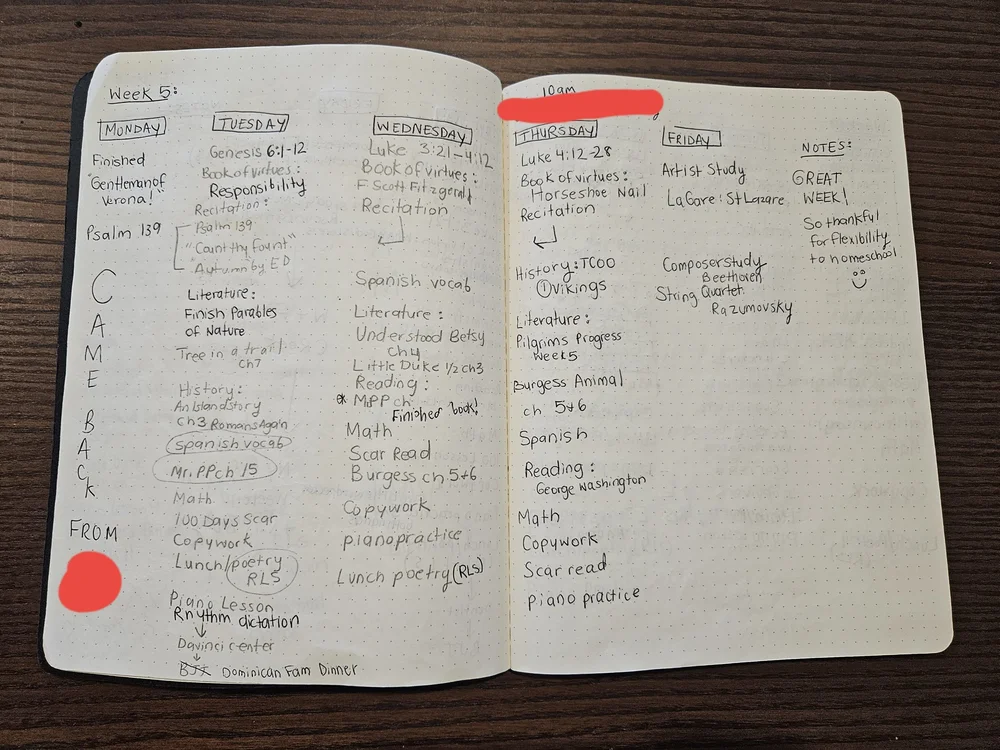 Week 5:
MONDAY
Finished
"Gentleman of
Verona!"
Psalm 139
CAME
BACK
FROM
TUESDAY
Genesis 6:1-12
Book of virtues:
Responsibility
Recitation:
Psalm 139
"Count thy fount"
Autumn by ED
Literature:
Finish Parables
of Nature
Tree in a trail
Ch7
History:
An Island Story
ch3 Romans Again
Spanish vocab
Mr. PP ch 15
Math
100 Days Scar
Copywork
Lunch/poetry
RLS
Piano Lesson
Rhythm dictation
Davinci center
Dominican Fam Dinner
WEDNESDAY
Luke 3:21-4:12
Book of virtues:
F Scott Fitzgerald
Recitation
Spanish vocab
Literature:
Understood Betsy
Ch4
Little Duke 1/2 ch3
Reading:
* MPP ch
Finished book!
Math
Scar Read
Burgess ch 5+6
Copywork
piano practice
Lunch poetry (RLS)
10am
THURSDAY
Luke 4:12-28
Book of virtues:
Horseshoe Nail
Recitation
History: TCOO
① Vikings
Literature:
Pilgrims Progress
Week 5
Burgess Animal
ch 5+6
Spanish
Reading:
George Washington
Math
Copywork
Scar read
piano practice
FRIDAY
Artist Study
La Gare: St Lazare
Composer study
Beethoven
String Quartet
Razumovsky
NOTES:
GREAT
WEEK!
So thankful
for flexibility
to homeschool